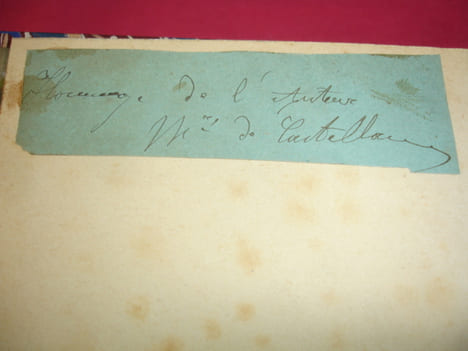 Hommage de l'Auteur
Mis de Castellane